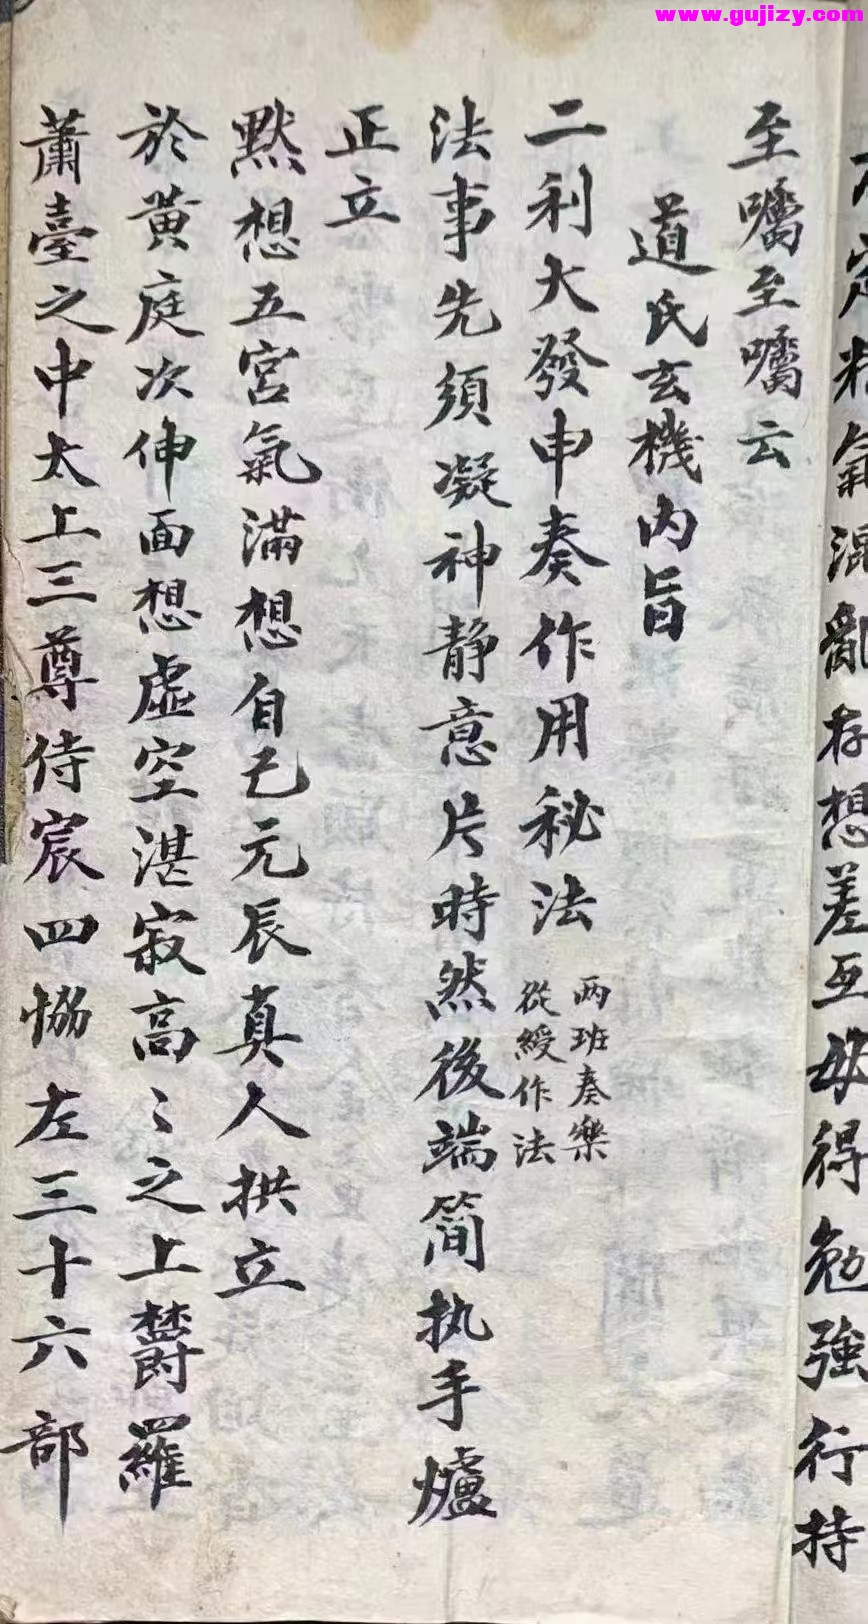 www.gujizy.com
定精氣混亂存想差互毋得勉強行持
至囑至囑云
道氏玄機內旨
二利大發申奏作用秘法
两班奏樂
從綬作法
法事先須凝神静意片時然後端简执手爐
正立
默想五宮氣滿想自己元辰真人拱立
於黄庭次伸面想虛空湛寂高〻之上欝羅
蕭臺之中太上三尊侍宸四協左三十六部